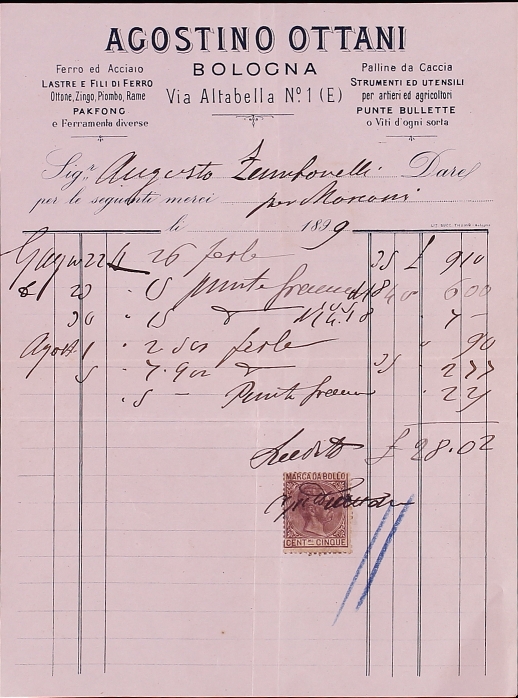 AGOSTINO OTTANI
BOLOGNA
Via Altabella N.º 1 (E)
Ferro ed Acciaio
LASTRE E FILI DI FERRO
Ottone, Zingo, Piombo, Rame
PAKFONG
e Ferramenta diverse
Palline da Caccia
STRUMENTI ED UTENSILI
per artieri ed agricoltori
PUNTE BULLETTE
o Viti d'ogni sorta
Sig.r Augusto Dare
per le seguenti merci per Marconi
li 1899
22 26 ferle 35 £ 910
20 15 punte 600
30 15 7 -
Agost 1 2.500 ferle 90
5 7.900 35 277
5 - Punte 225
Saldato £ 28.02
MARCA DA BOLLO
CENT.MI CINQUE